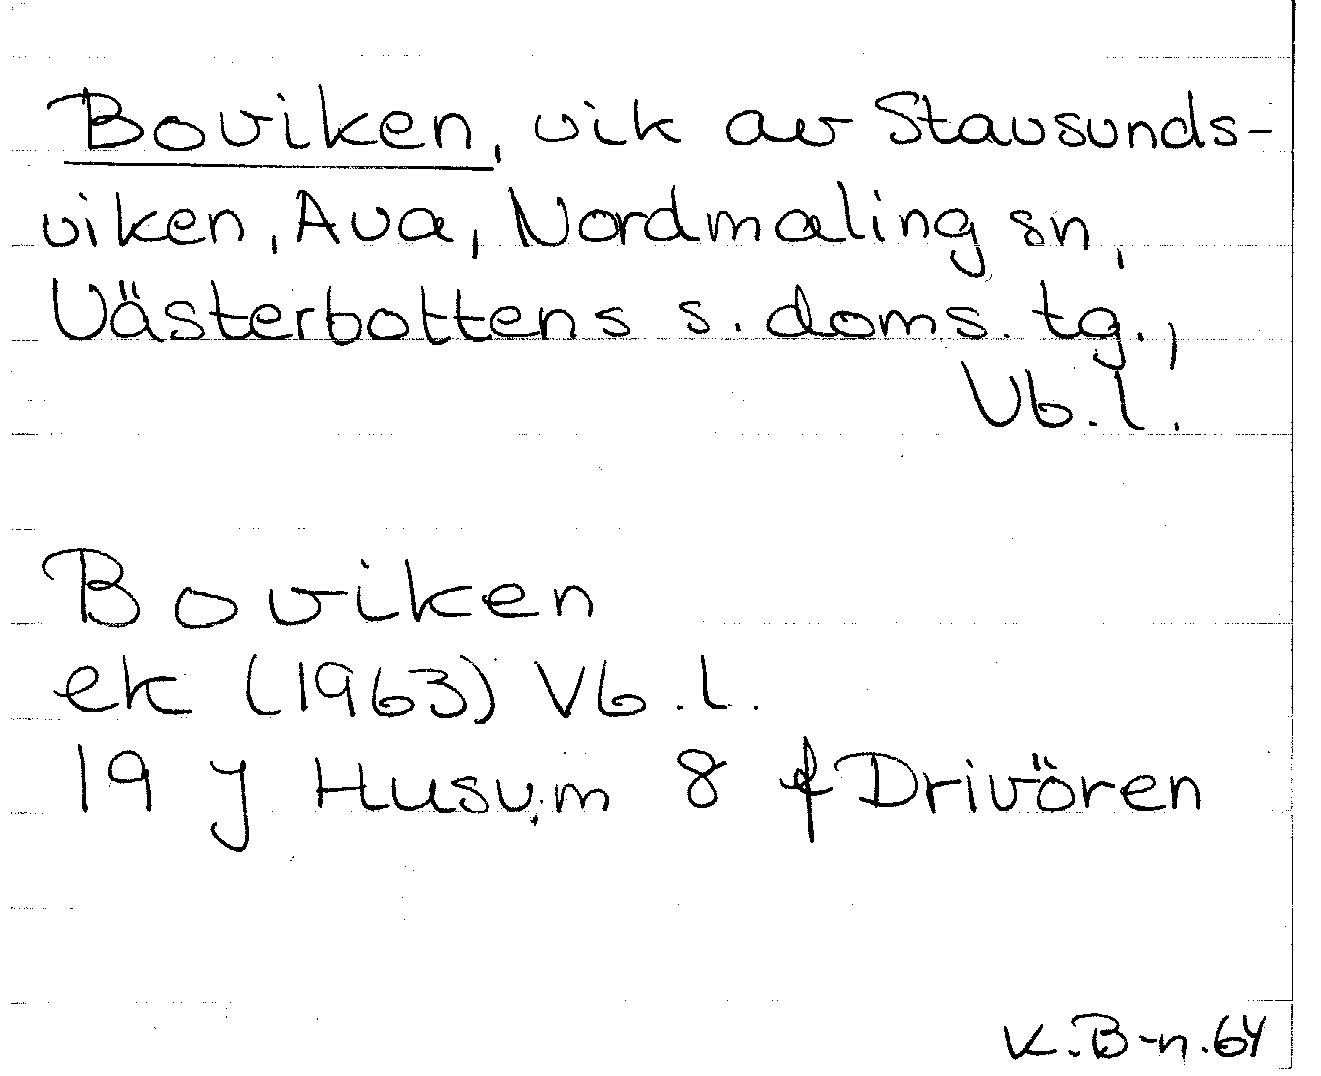 Boviken, vik av Stavsunds-
viken, Ava, Nordmaling sn,
Västerbottens s. doms. tg.,
Vb. l.
Boviken
ek (1963) Vb. l.
19 J Husum 8 f Drivören
K. B-n. 64